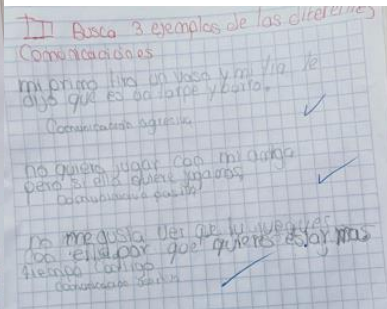 II Busca 3 ejemplos de las diferentes
Comunicaciones
mi primo tiro un vaso y mi tia le
dijo que es un torpe y burro.
Comunicación agresiva
no quiero jugar con mi amiga
pero si ella quiere jugamos
Comunicacion pasiva
no me gusta ver que tu juegues
con ella por que quieres estar mas
tiempo contigo